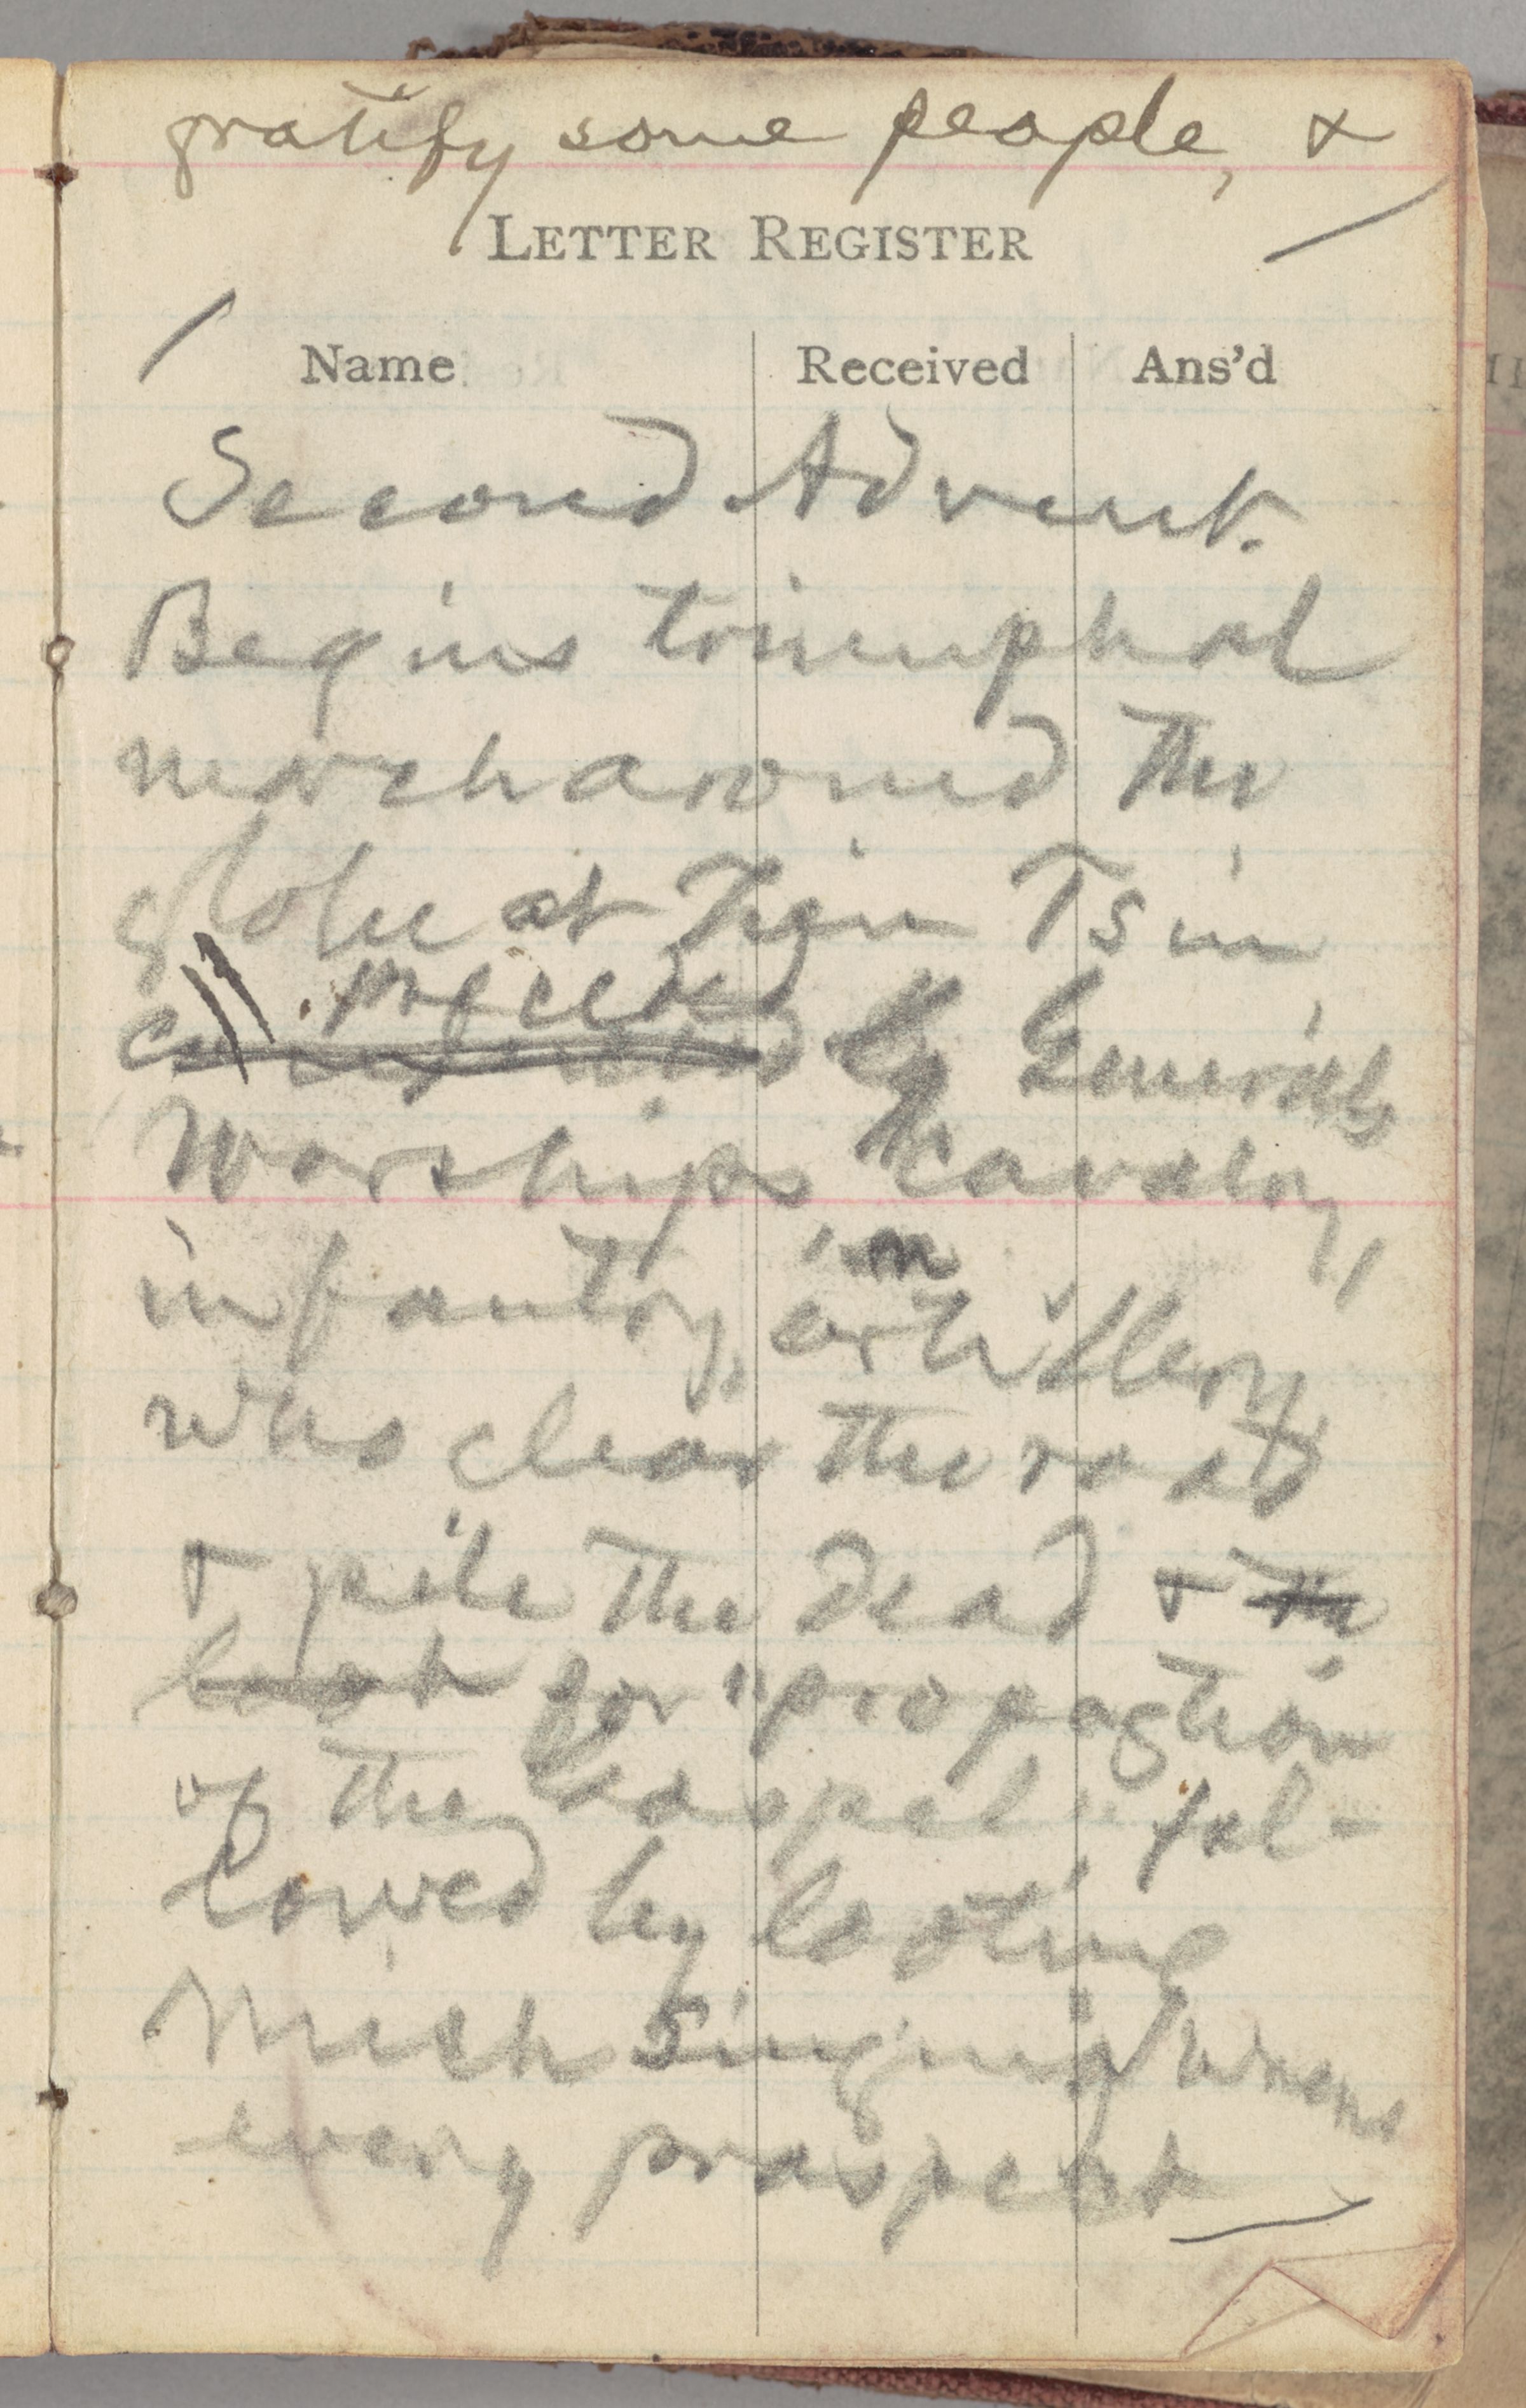 gratify some people, &
LETTER REGISTER
Name Received Ans'd
Second Advent.
Begins triumphal
march around the
globe at Tien Tsin
preceded
by Generals
Warships, cavalry,
infantry, artillery,
who clear the road
& pile the dead & the
loot for "propagtion
of the Gospel" fol-
lowed by looting
Mich singing "where
every prospect